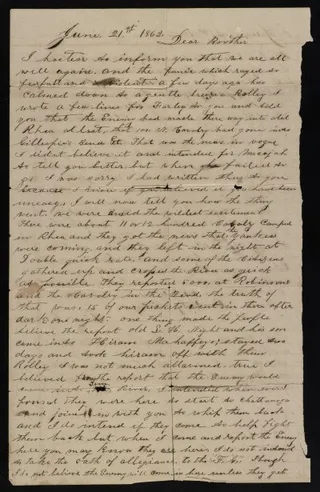 June 21st 1862 Dear Brother
I hasten to inform you that we are all
well again, and the panic which raged so
fearfull and a few days ago has
calmed down to a gentle breeze Rolley I
wrote a few lines for Darley to you and told
you that the Enemy had made there way into old
Rhea all but, that on W. had gone into
Gillespies That was the news in vogue
I didnt believe it and intended for
to tell you better but when he failed to
go I was sorry I had written thing to you
Because I know if you believed it you have been
uneasy I will now tell you how the thing
went. we were the wildest excitement
There were about 11 or 12 hundred Cavalry Camped
in Rhea and they got the news that the Yankees
were coming and they left in the night at
double quick rate, and some of the Citizens
gathered up and crossed the River as quick
as possible They reported 5000 at Robinsons
and the Cavalry in the the truth of
that was 15 of our pickets went in there after
dark one night. one thing made the people
believe the report old D. H. Night and his son
came into F Hiram Mahaffeys; stayed two
days and took Hiram off with them
Rolley I was not much alarmed, true I
believed the report that the Enemy would
come into River, I intended when ever I
found They were here to start to Chattanooga
and joine in with you to whip them back
and I do intend if they come to help fight
them back but when it come and report the Enemy
here you may know they are here I do not intend
to take the oath of allegiance to the
I do not believe the Enemy will come in here unless they get